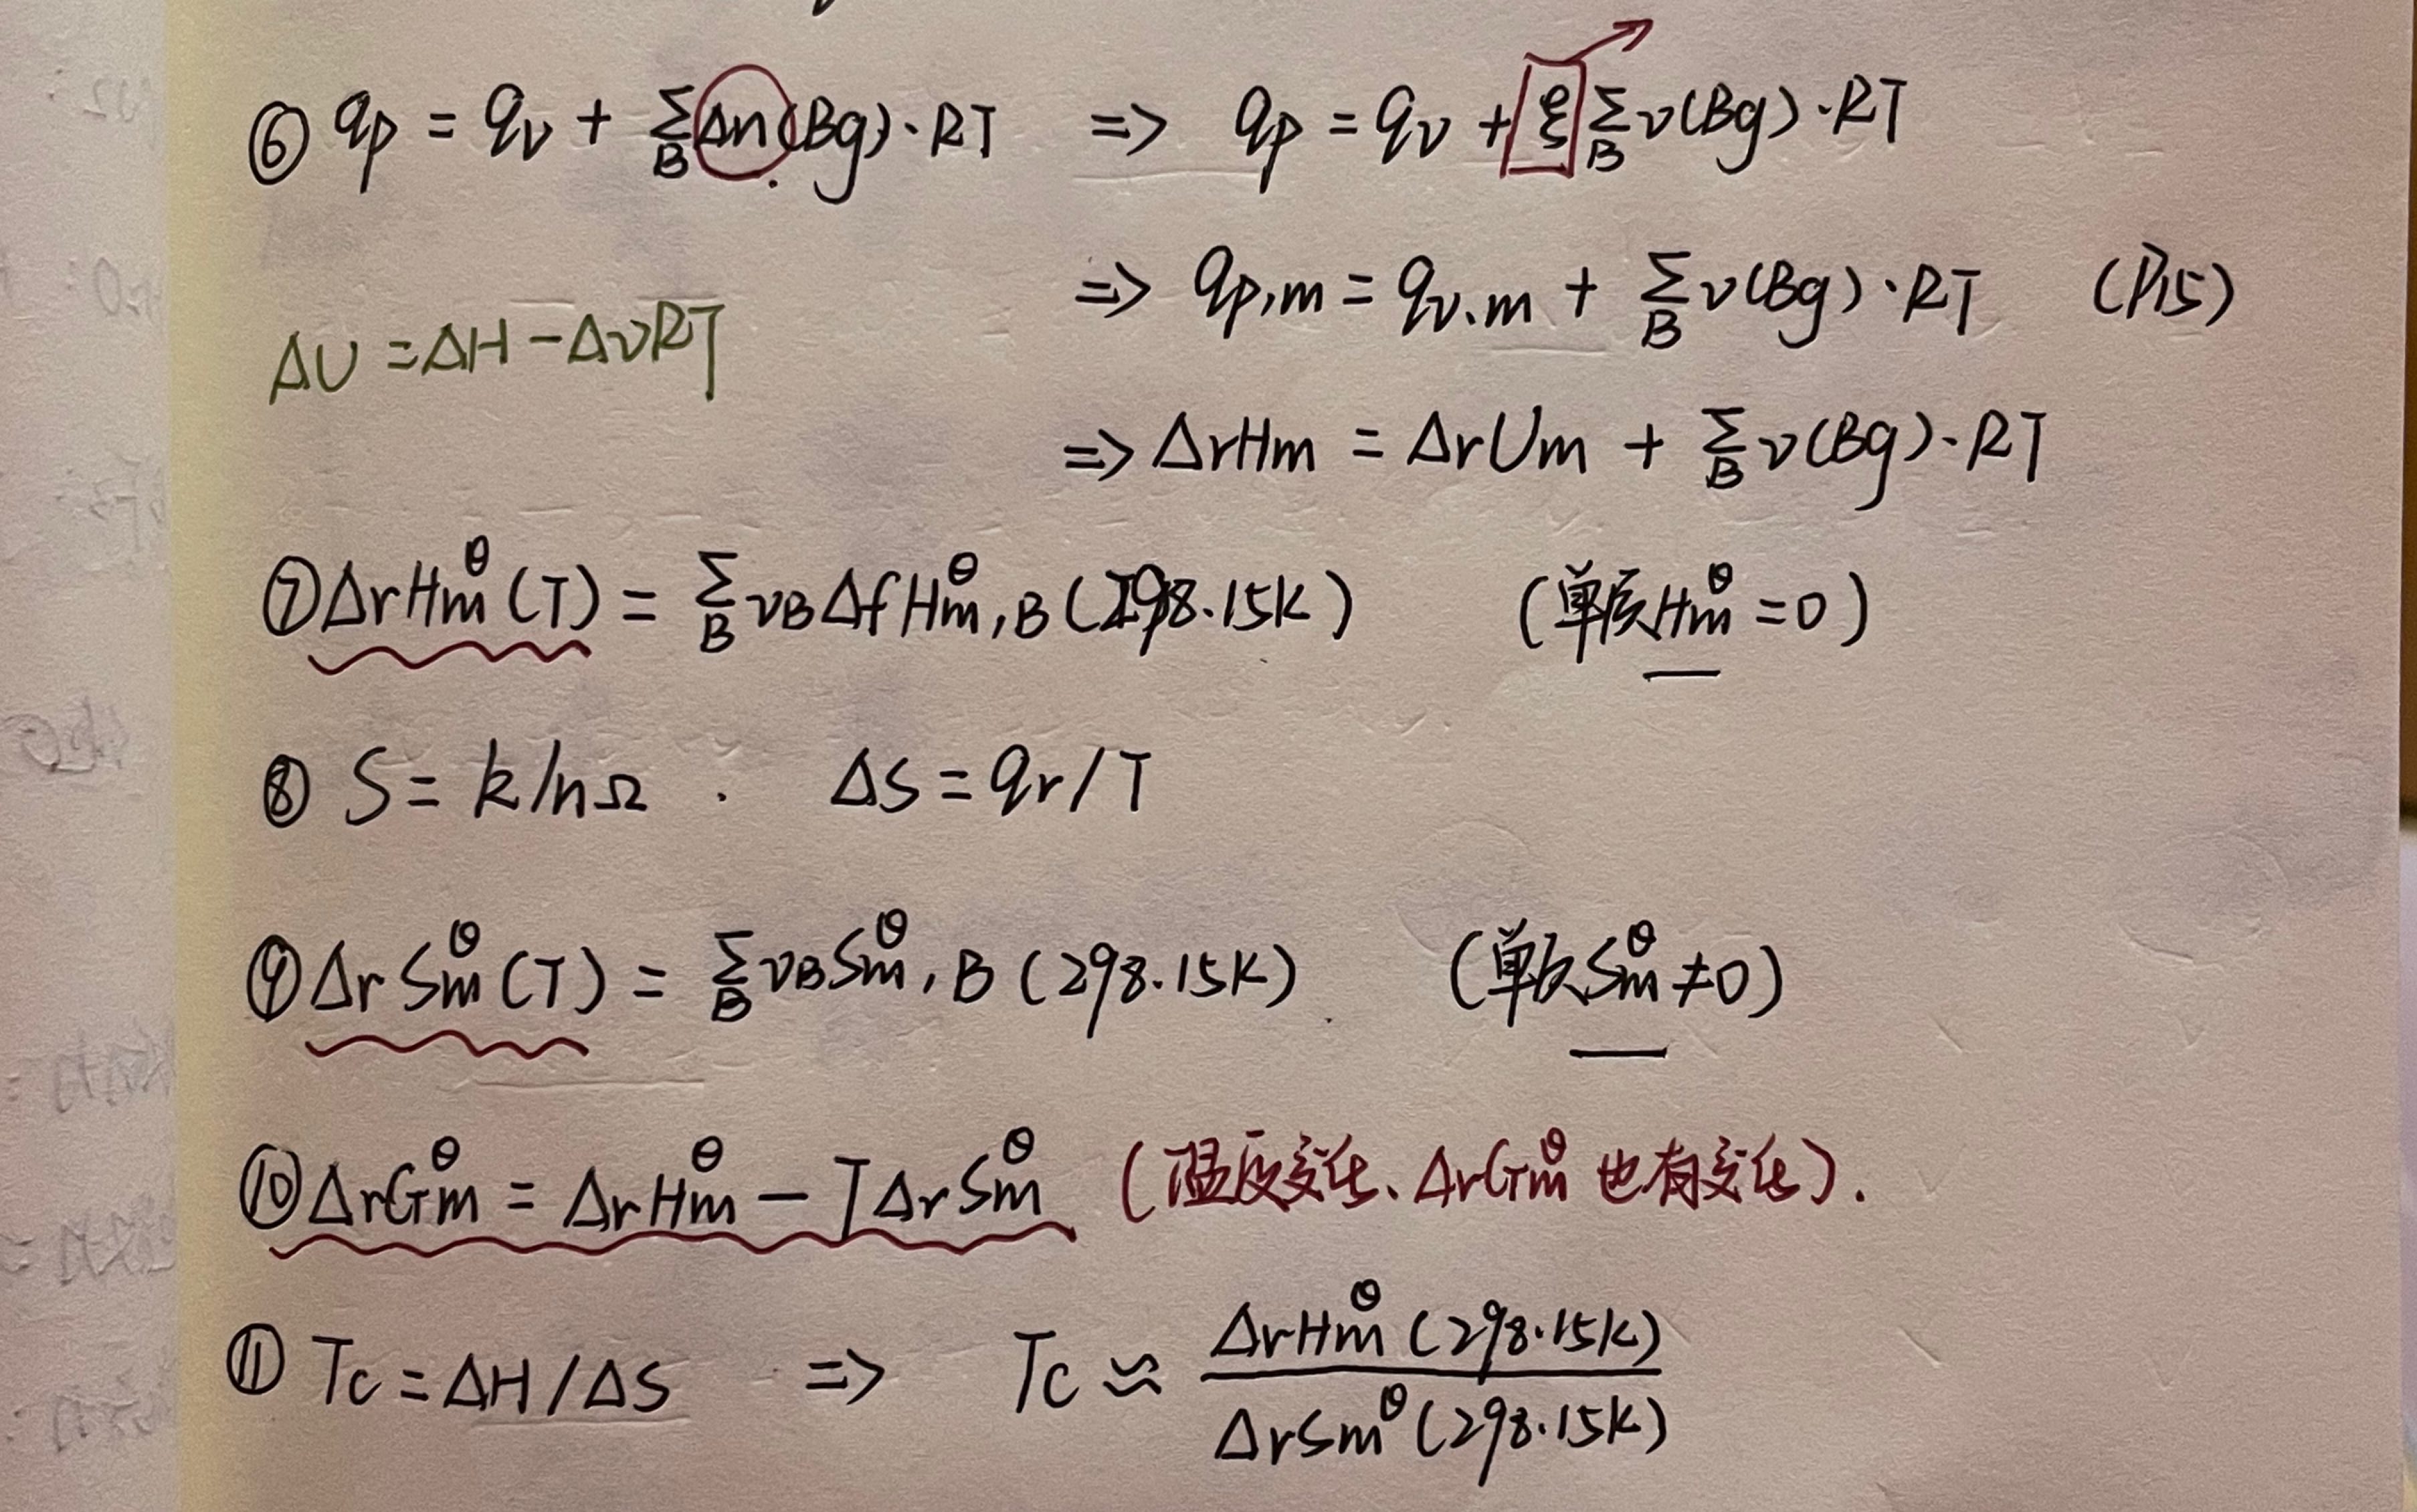 ⑥ qp = qv + Σ_B Δn(Bg)·RT => qp = qv + ξ Σ_B ν(Bg)·RT
=> qp,m = qv.m + Σ_B ν(Bg)·RT (P15)
ΔU = ΔH - ΔνRT
=> ΔrHm = ΔrUm + Σ_B ν(Bg)·RT
⑦ ΔrHm^θ (T) = Σ_B νB ΔfHm^θ,B (298.15K) (单质Hm^θ = 0)
⑧ S = klnΩ . ΔS = qr/T
⑨ ΔrSm^θ (T) = Σ_B νB Sm^θ,B (298.15K) (单质Sm^θ ≠ 0)
⑩ ΔrGm^θ = ΔrHm^θ - TΔrSm^θ (温度变化、ΔrGm^θ 也有变化).
⑪ Tc = ΔH/ΔS => Tc ≈ ΔrHm^θ (298.15K) / ΔrSm^θ (298.15K)